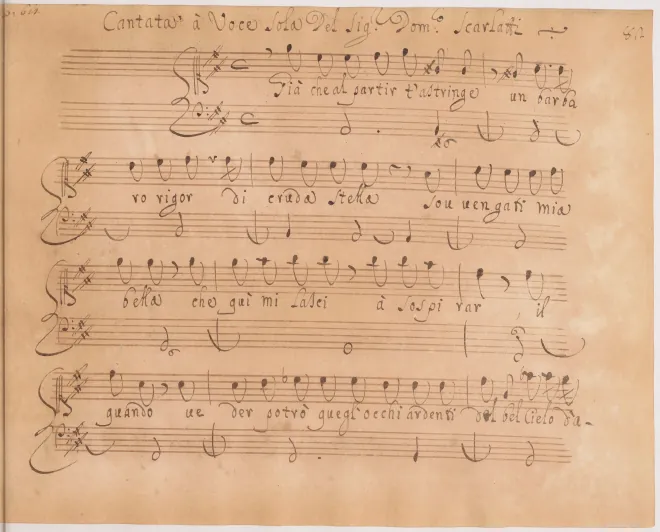 Cantata à Voce Sola Del Sig.r Dom.co Scarlatti
Già che al partir t'astringe un barba
ro rigor di cruda stella Sou uengati mia
bella che quì mi lasci à sospi rar il
quando ue der potrò quegl'occhi ardenti del bel Cielo d'a-